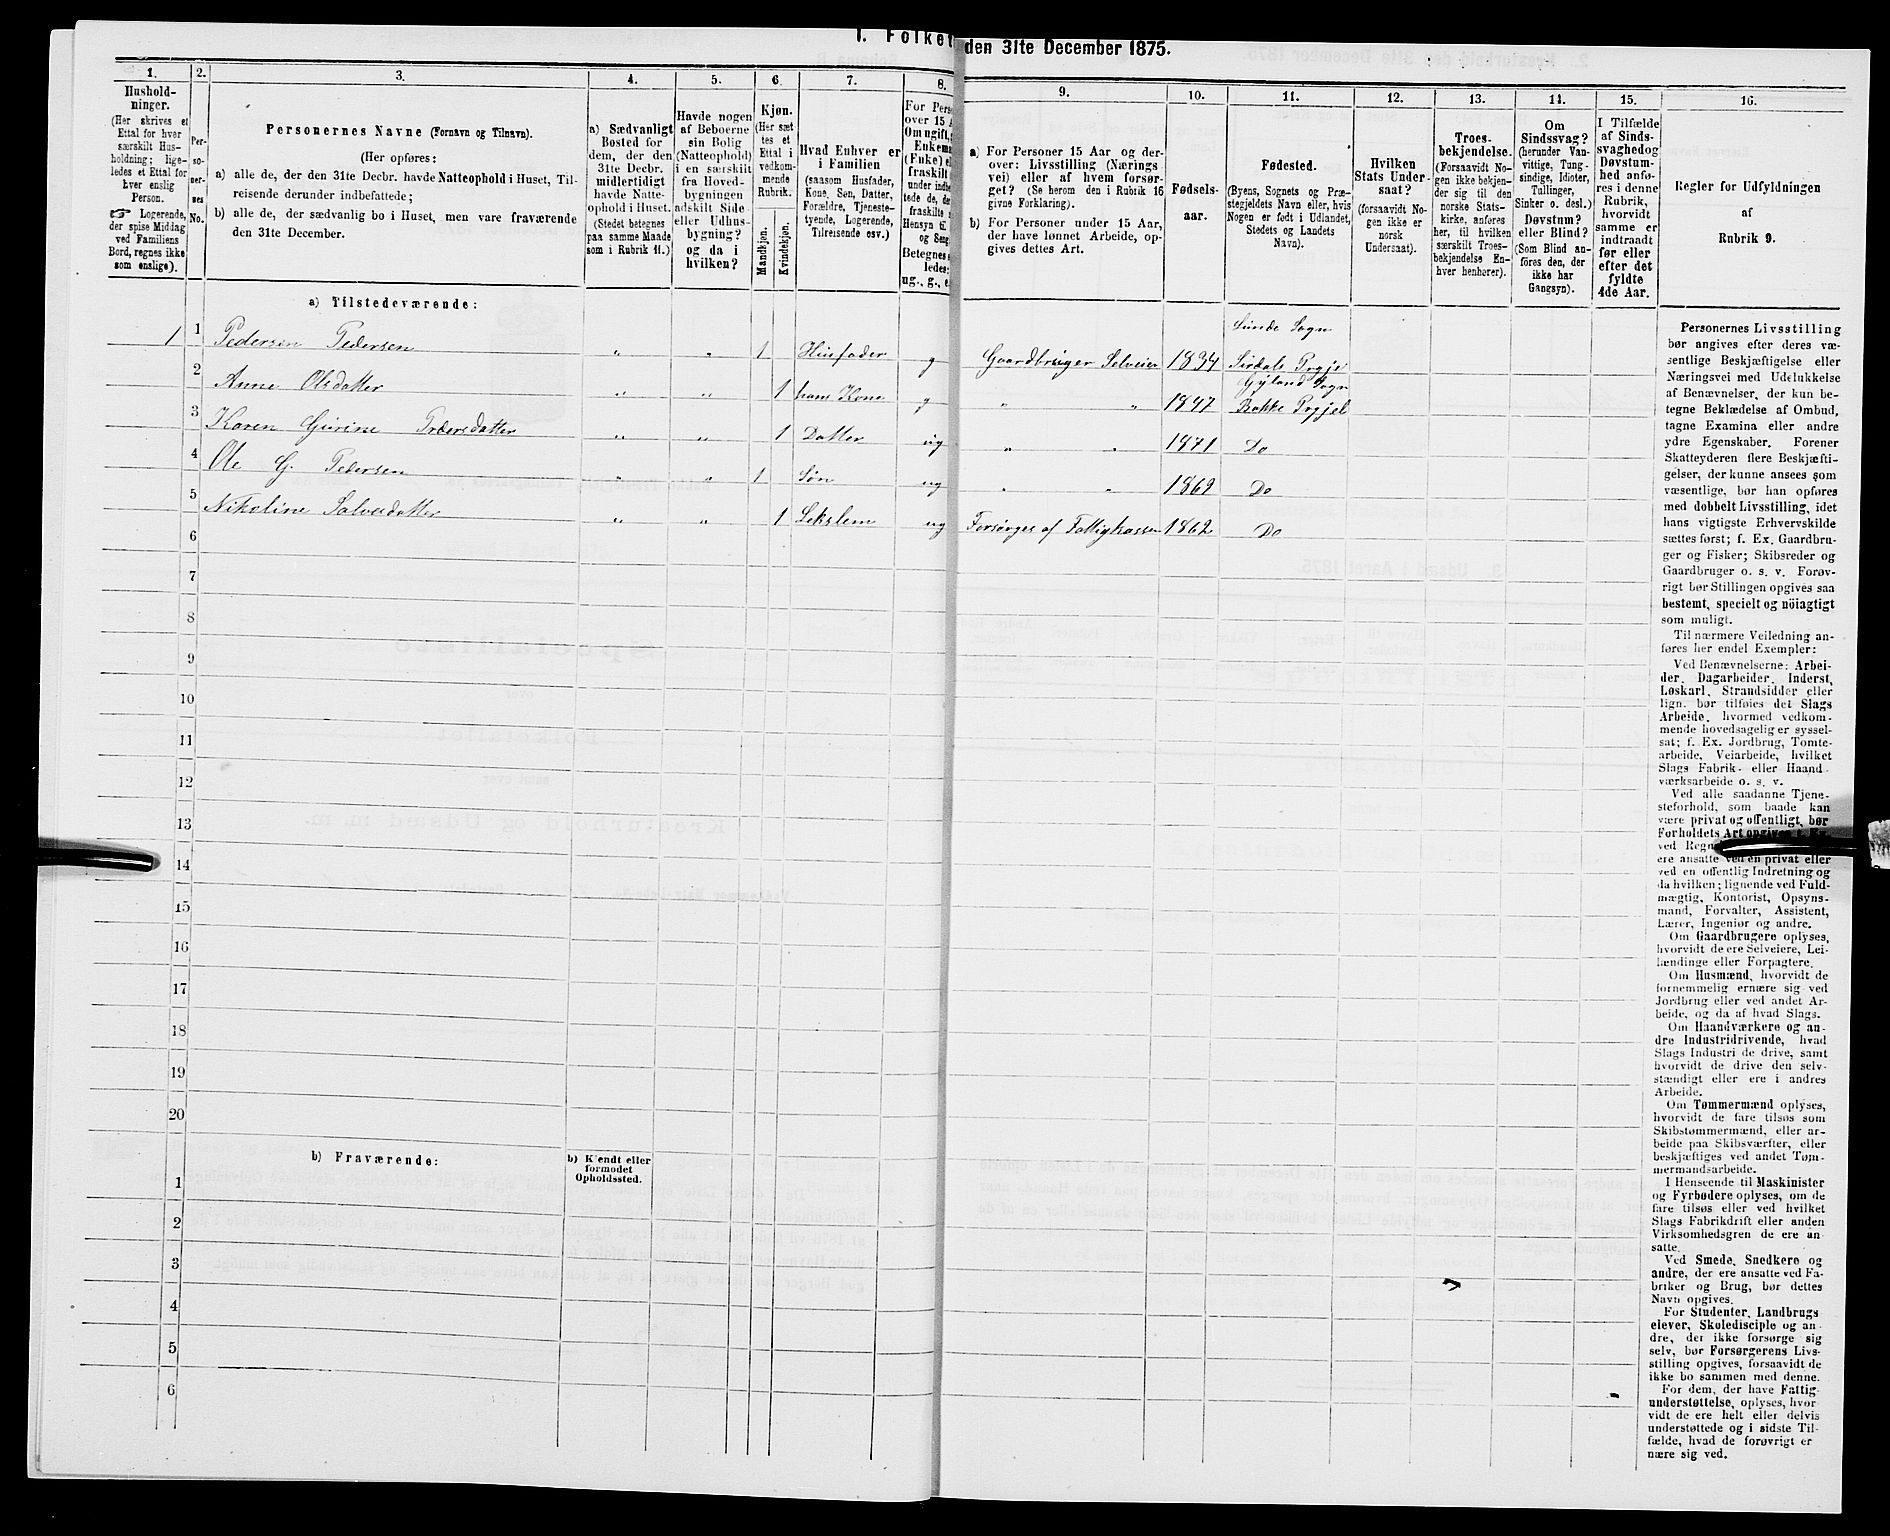 1. Folket
den 31te December 1875.
1.
Hushold-
ninger.
(Her skrives et
Ettal for hver
særskilt Hus-
holdning; lige-
ledes et Ettal for
hver enslig
Person.
☞ Logerende,
der spise Middag
ved Familiens
Bord, regnes ikke
som enslige).
2.
Per-
so-
ner-
nes
No.
3.
Personernes Navne (Fornavn og Tilnavn).
(Her opføres:
a) alle de, der den 31te Decbr. havde Natteophold i Huset, Til-
reisende derunder indbefattede;
b) alle de, der sædvanlig bo i Huset, men vare fraværende
den 31te December.
4.
a) Sædvanligt
Bosted for
dem, der den
31te Decbr.
midlertidigt
havde Natte-
ophold i Huset.
(Stedet betegnes
paa samme Maade
som i Rubrik 11.)
5.
Havde nogen
af Beboerne
sin Bolig
(Natteophold)
i en særskilt
fra Hoved-
bygningen
adskilt Side-
eller Udhus-
bygning?
og da i
hvilken?
6.
Kjøn.
(Her sæt-
tes et
Ettal i
vedkom-
mende
Rubrik.
Mandkjøn.
Kvindekjøn.
7.
Hvad Enhver er
i Familien
(saasom Husfader,
Kone, Søn, Datter,
Forældre, Tjeneste-
tyende, Logerende,
Tilreisende osv.)
8.
For Pers
over 15 A
Om ugift,
Enkema
(Fuke) el
fraskilt
under indbe
tede de, de
fraskilte
Hensyn ti
og Seng
Betegnes
ledes:
ug., g., e.
9.
a) For Personer 15 Aar og der-
over: Livsstilling (Nærings
vei) eller af hvem forsør-
get? (Se herom den i Rubrik 16
givne Forklaring).
b) For Personer under 15 Aar,
der have lønnet Arbeide, op-
gives dettes Art.
10.
Fødsels-
aar.
11.
Fødested.
(Byens, Sognets og Præ-
stegjeldets Navn eller, hvis
Nogen er født i Udlandet,
Stedets og Landets
Navn).
12.
Hvilken
Stats Under-
saat?
(forsaavidt No-
gen ikke er
norsk
Undersaat).
13.
Troes-
bekjendelse.
(Forsaavidt No-
gen ikke bekjen-
der sig til den
norske Stats-
kirke, anføres
her, til hvilken
særskilt Troes-
bekjendelse En-
hver henhører).
14.
Om
Sindssvag?
(herunder Van-
vittige, Tung-
sindige, Idioter,
Tullinger,
Sinker o. desl.)
Døvstum?
eller Blind?
(Som Blind an-
føres den, der
ikke har
Gangsyn).
15.
I Tilfælde
af Sinds-
svaghed og
Døvstum-
hed anfø-
res i denne
Rubrik,
hvorvidt
samme er
indtraadt
før eller
efter det
fyldte
4de Aar.
16.
Regler for Udfyldningen
af
Rubrik 9.
a) Tilstedeværende:
1 1 Pedersen Pedersen " " 1 Husfader g Gaardbruger Selveier 1834 Lunde Sogn
Sirdals Prgje
2 Anne Olsdatter " " 1 hans Kone g " " 1847 Gyland Sogn
Bakke Prgjel
3 Karen Gurine Pedersdatter " " 1 Datter ug " " 1871 Do
4 Ole G. Pedersen " " 1 Søn ug " " 1869 Do
5 Nikoline Salvesdatter " " 1 Lekslem ug Forsørges af Fattigkassen 1862 Do
6
7
8
9
10
11
12
13
14
15
16
17
18
19
20
b) Fraværende:
b) Kjendt eller
formodet
Opholdssted.
1
2
3
4
5
6
Personernes Livsstilling
bør angives efter deres væ-
sentlige Beskjæftigelse eller
Næringsvei med Udelukkelse
af Benævnelser, der kun be-
tegne Beklædelse af Ombud,
tagne Examina eller andre
ydre Egenskaber. Forener
Skatteyderen flere Beskjæfti-
gelser, der kunne ansees som
væsentlige, bør han opføres
med dobbelt Livsstilling, idet
hans vigtigste Erhvervskilde
sættes først; f. Ex. Gaardbru-
ger og Fisker; Skibsreder og
Gaardbruger o. s. v. Forøv-
rigt bør Stillingen opgives saa
bestemt, specielt og nöiagtigt
som muligt.
Til nærmere Veiledning an-
føres her endel Exempler:
Ved Benævnelserne: Arbei-
der, Dagarbeider, Inderst,
Løskarl, Strandsidder eller
lign. bør tilføies det Slags
Arbeide, hvormed vedkom-
mende hovedsagelig er syssel-
sat; f. Ex. Jordbrug, Tomte-
arbeide, Veiarbeide, hvilket
Slags Fabrik- eller Haand-
værksarbeide o. s. v.
Ved alle saadanne Tjene-
steforhold, som baade kan
være privat og offentligt, bør
Forholdets Art opgives f. Ex.
ved Regn
ere ansatte ved en privat eller
ved en offentlig Indretning og
da hvilken; lignende ved Fuld-
mægtig, Kontorist, Opsyns-
mand, Forvalter, Assistent,
Lærer, Ingeniør og andre.
Om Gaardbrugere oplyses,
hvorvidt de ere Selveiere, Lei-
lændinge eller Forpagtere.
Om Husmænd, hvorvidt de
fornemmelig ernære sig ved
Jordbrug eller ved andet Ar-
beide, og da af hvad Slags.
Om Haandværkere og an-
dre Industridrivende, hvad
Slags Industri de drive, samt
hvorvidt de drive den selv-
stændigt eller ere i andres
Arbeide.
Om Tømmermænd oplyses,
hvorvidt de fare tilsøs som
Skibstømmermænd, eller ar-
beide paa Skibsværfter, eller
beskjæftiges ved andet Tøm-
mermandsarbeide.
I Henseende til Maskinister
og Fyrbødere oplyses, om de
fare tilsøs eller ved hvilket
Slags Fabrikdrift eller anden
Virksomhedsgren de ere an-
satte.
Ved Smede, Snedkere og
andre, der ere ansatte ved Fa-
briker og Brug, bør dettes
Navn opgives.
For Studenter, Landbrugs-
elever, Skoledisciple og an-
dre, der ikke forsørge sig
selv, bør Forsørgerens Livs-
stilling opgives, forsaavidt de
ikke bo sammen med denne.
For dem, der have Fattig-
understøttelse, oplyses, hvor-
vidt de ere helt eller delvis
understøttede og i sidste Til-
fælde, hvad de forøvrigt er
nære sig ved.